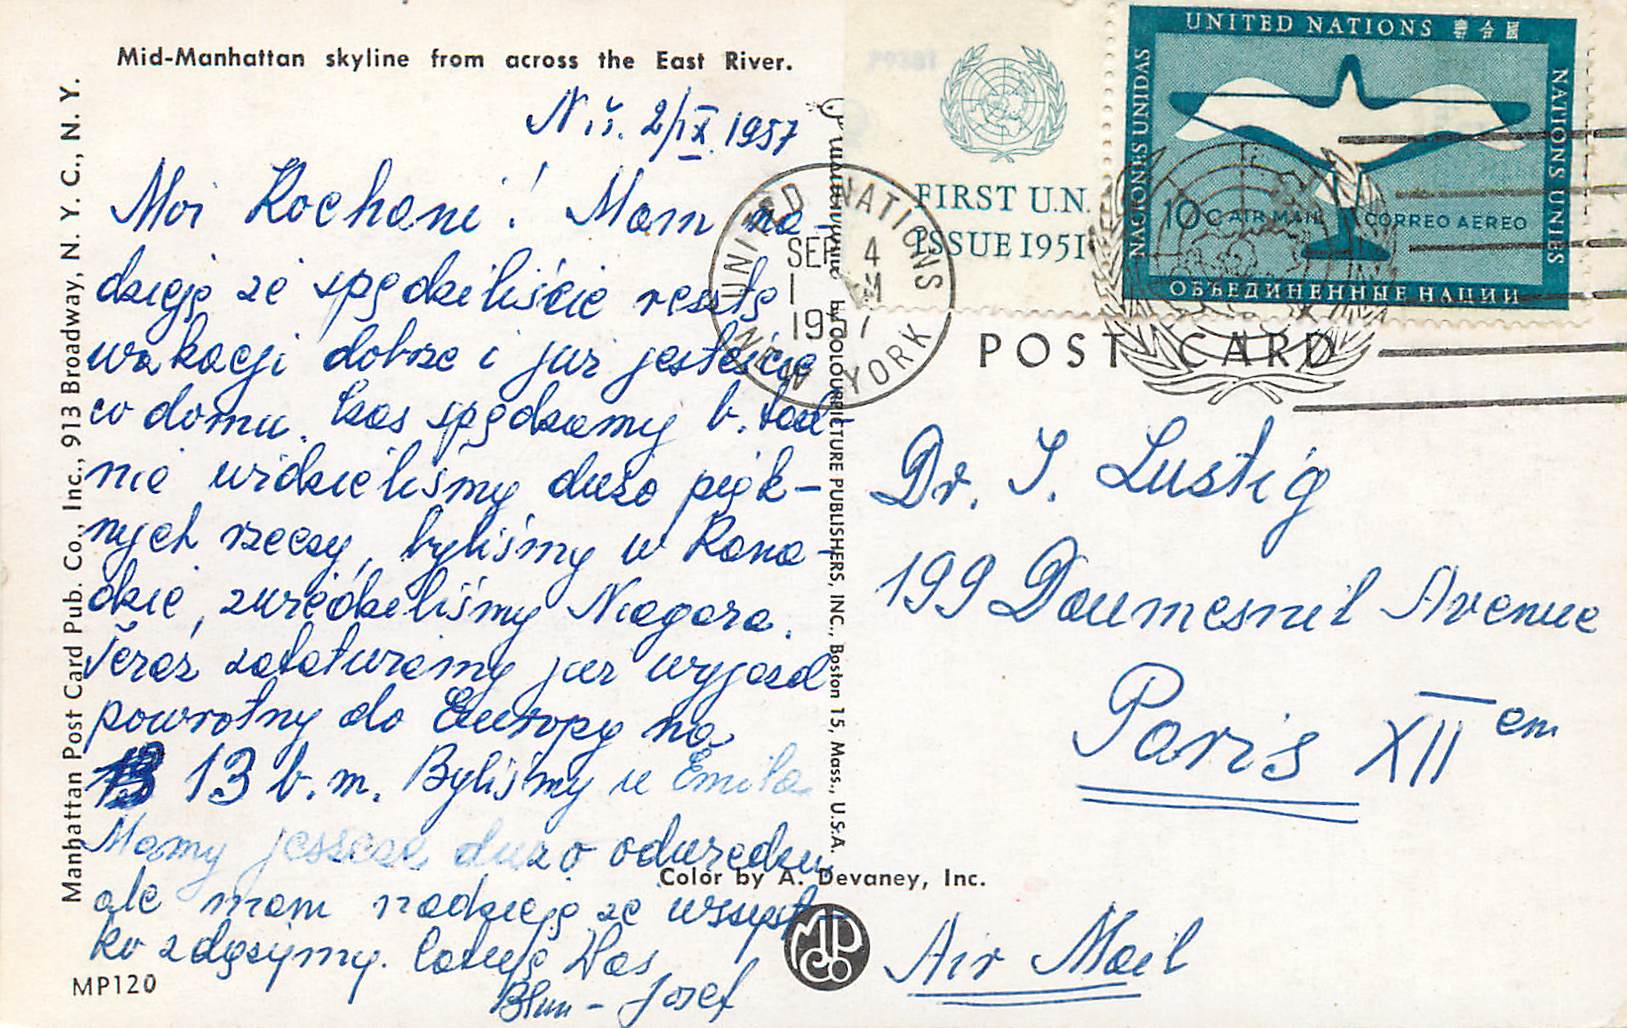 Mid-Manhattan skyline from across the East River.
Manhattan Post Card Pub. Co., Inc., 913 Broadway, N. Y. C., N. Y.
2/IX 1957
Moi Kochani! Mam na-
dzieję że spędziliście resztę
wakacji dobrze i już jesteście
w domu. Czas spędzamy b. ład-
nie widzieliśmy dużo pięk-
nych rzeczy, byliśmy w Kana-
dzie, zwiedziliśmy Niagara.
Teraz załatwiamy już wyjazd
powrotny do Europy na
13 b. m. Byliśmy u Emila
Mamy jeszcze dużo
ale mam nadzieję że wszyst-
ko zdążymy. Całuję Was
Józef
MP120
by COLOURPICTURE PUBLISHERS, INC., Boston 15, Mass., U.S.A.
Color by A. Devaney, Inc.
MP Co
FIRST U.N.
ISSUE 1951
UNITED NATIONS
NACIONES UNIDAS
NATIONS UNIES
10c AIR MAIL CORREO AEREO
ОБЪЕДИНЕННЫЕ НАЦИИ
UNITED NATIONS
SEP 4
1 PM
1957
NEW YORK
POST CARD
Dr. I. Lustig
199 Daumesnil Avenue
Paris XII em
Air Mail